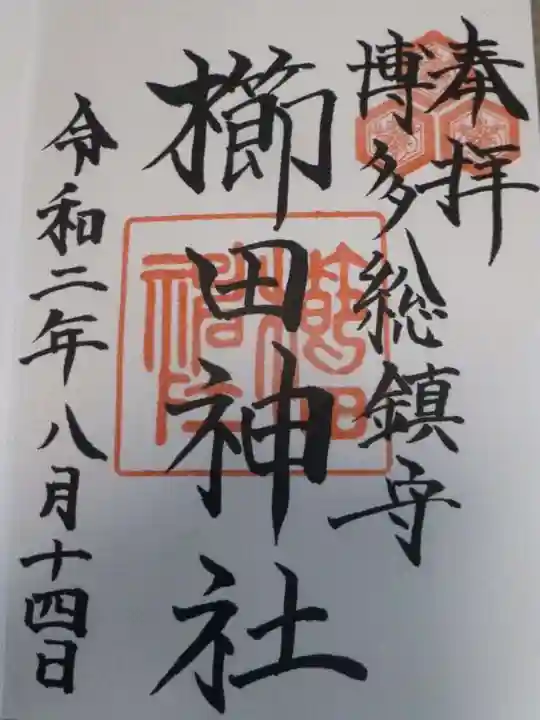 奉拝
博多総鎮守
櫛田神社
令和二年八月十四日